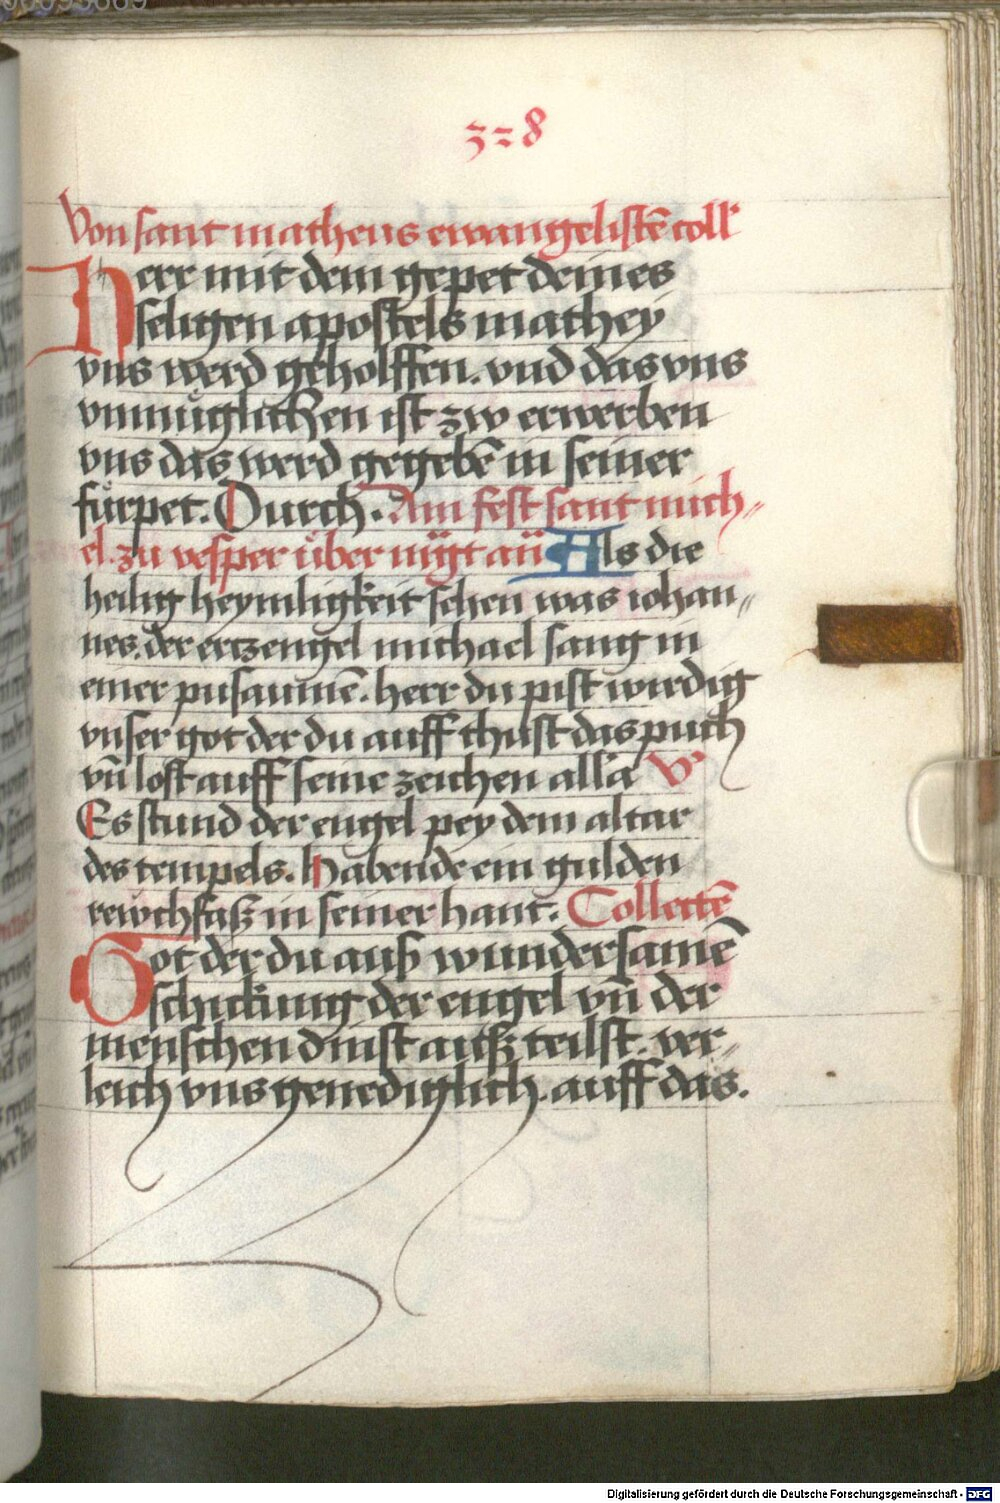 328
Von sant matheus ewangelistē coll'
Herr mit dem gepet deines
seligen apostels mathey
vns werd geholffen. vnd das vns
vnmüglichen ist zw erwerben
vns das werd gegebē in seiner
fürpet. Durch. Am fest sant mich-
el. zu vesper über mḡt an̄ Als die
heilig heymligkeit sehen was iohan-
nes. der ertzengel michael sang in
einer pusaumē. herr du pist wirdig
vnser got der du auff thust das puch
vn̄ lost auff seine zeichen alla V
Es stund der engel pey dem altar
des tempels. habende ein gulden
rewchfaß in seiner hant. Collectē
Got der du auß wundersamē
schickung der engel vn̄ der
menschen dinst auß teilst. ver-
leich vns genediglich. auff das.
Digitalisierung gefördert durch die Deutsche Forschungsgemeinschaft - DFG